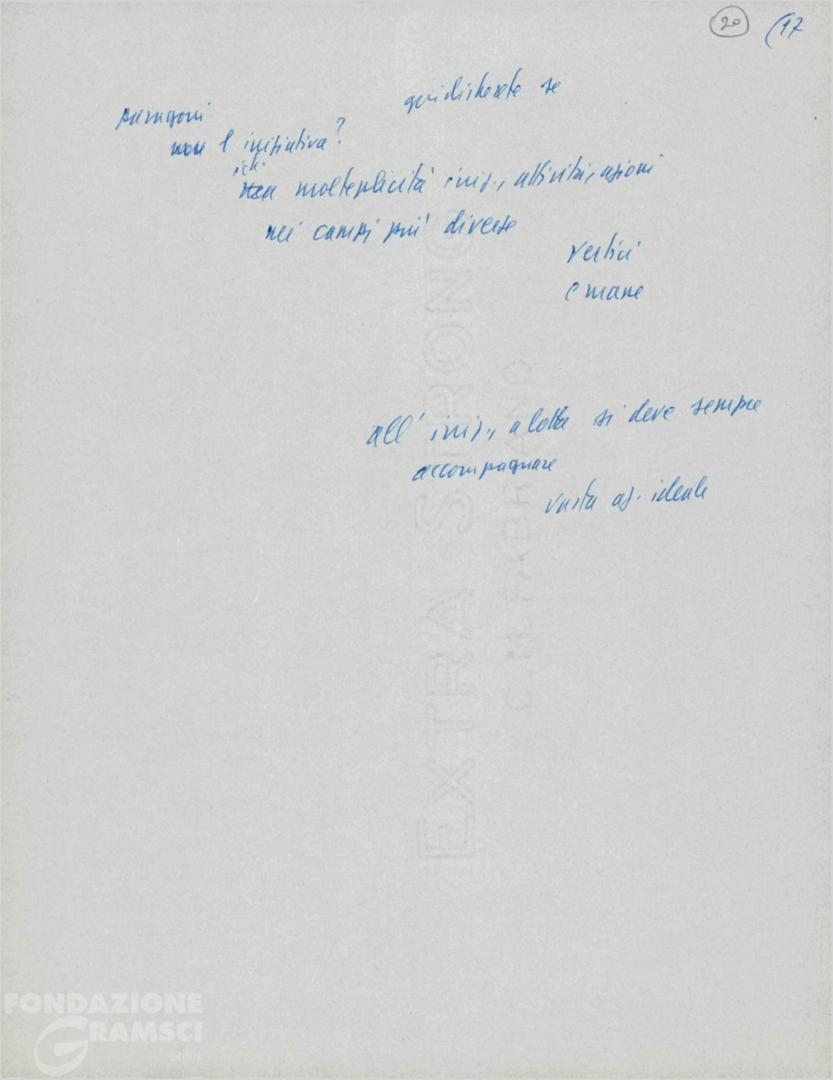 20 (17
se
non l'iniziativa?
molteplicità iniz., attività, azioni
nei campi più diversi
vertici
e mane
all' iniz., a lotta si deve sempre
accompagnare
vasta az. ideale
EXTRA STRONG
C. M. FABRIANO
FONDAZIONE
GRAMSCI
onlus